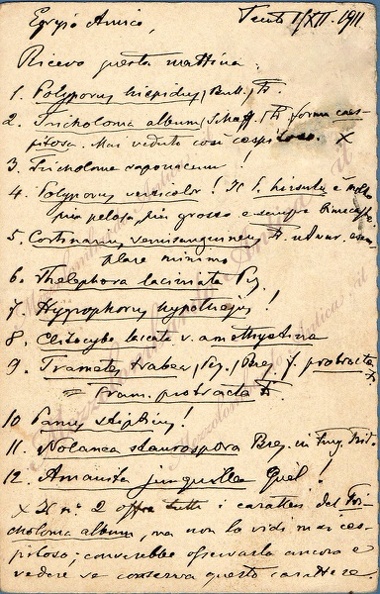 Egregio Amico, Trento 1/XII. 911.
Ricevo questa mattina:
1. Polyporus hispidus, (Bull.) Fr.
2. Tricholoma album, Schaeff., Fr. forma caes-
pitosa. Mai veduto così cespitoso. X
3. Tricholoma saponaceum!
4. Polyporus versicolor! Il P. hirsutus è molto
più peloso, più grosso e sempre
5. Cortinarius semisanguineus Fr.
plare minimo
6. Thelephora laciniata Pers.
7. Hygrophorus hypothejus!
8. Clitocybe laccata v. amethystina
9. Trametes trabea, (Pers.) Bres. f. protracta
= Tram. protracta Fr.
10 Panus stipticus!
11. Nolanea staurospora Bres. in Fung. Trid.
12. Amanita junquillea Quel!
X Il n° 2 offre tutti i caratteri del Tri-
choloma album, ma non la vidi mai ces-
pitosa; converrebbe osservarla ancora e
vedere se conserva questo carattere.